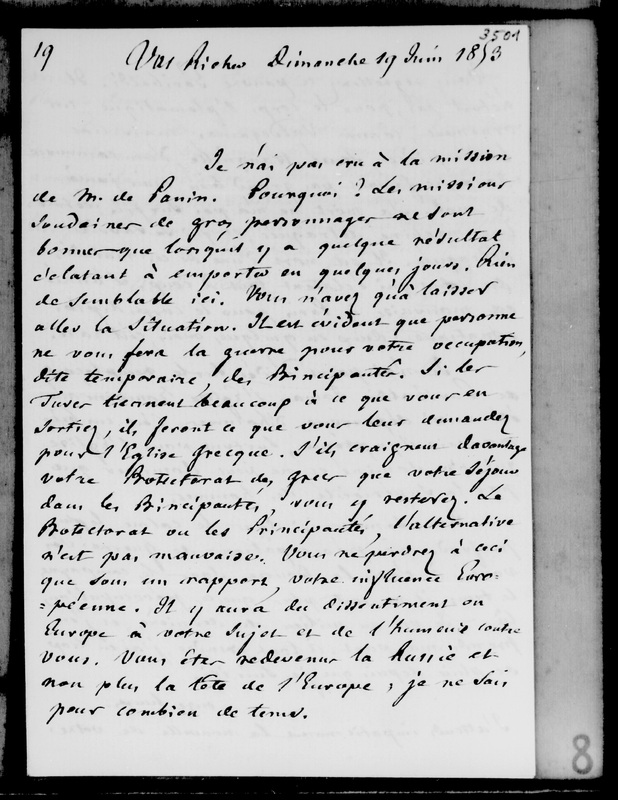 3501
19 Val Richer Dimanche 19 Juin 1853
Je n'ai pas cru à la mission
de M. de Panin. Pourquoi ? Les missions
soudaines de gros personnages ne sont
bonnes que lorsqu'il y a quelque résultat
éclatant à emporter en quelques jours. Rien
de semblable ici. Vous n'avez qu'à laisser
aller la situation. Il est évident que personne
ne vous fera la guerre pour votre occupation,
dite temporaire, des Principautés. Si les
Turcs tiennent beaucoup à ce que vous en
sortiez, ils feront ce que vous leur demandez
pour l'Eglise Grecque. S'ils craignent davantage
votre Protectorat des Grecs que votre séjour
dans les Principautés, vous y resterez. Le
Protectorat ou les Principautés, l'alternative
n'est pas mauvaise. Vous ne perdrez à ceci
que sous un rapport, votre influence Euro-
=péenne. Il y aura du dissentiment en
Europe à votre sujet et de l'humeur contre
vous. Vous êtes redevenus la Russie et
non plus la tête de l'Europe ; je ne sais
pour combien de tems.
8